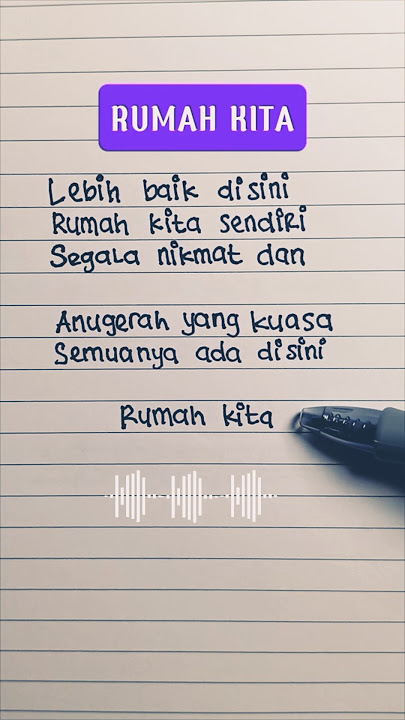 RUMAH KITA
Lebih baik disini
Rumah kita sendiri
Segala nikmat dan
Anugerah yang kuasa
Semuanya ada disini
Rumah kita